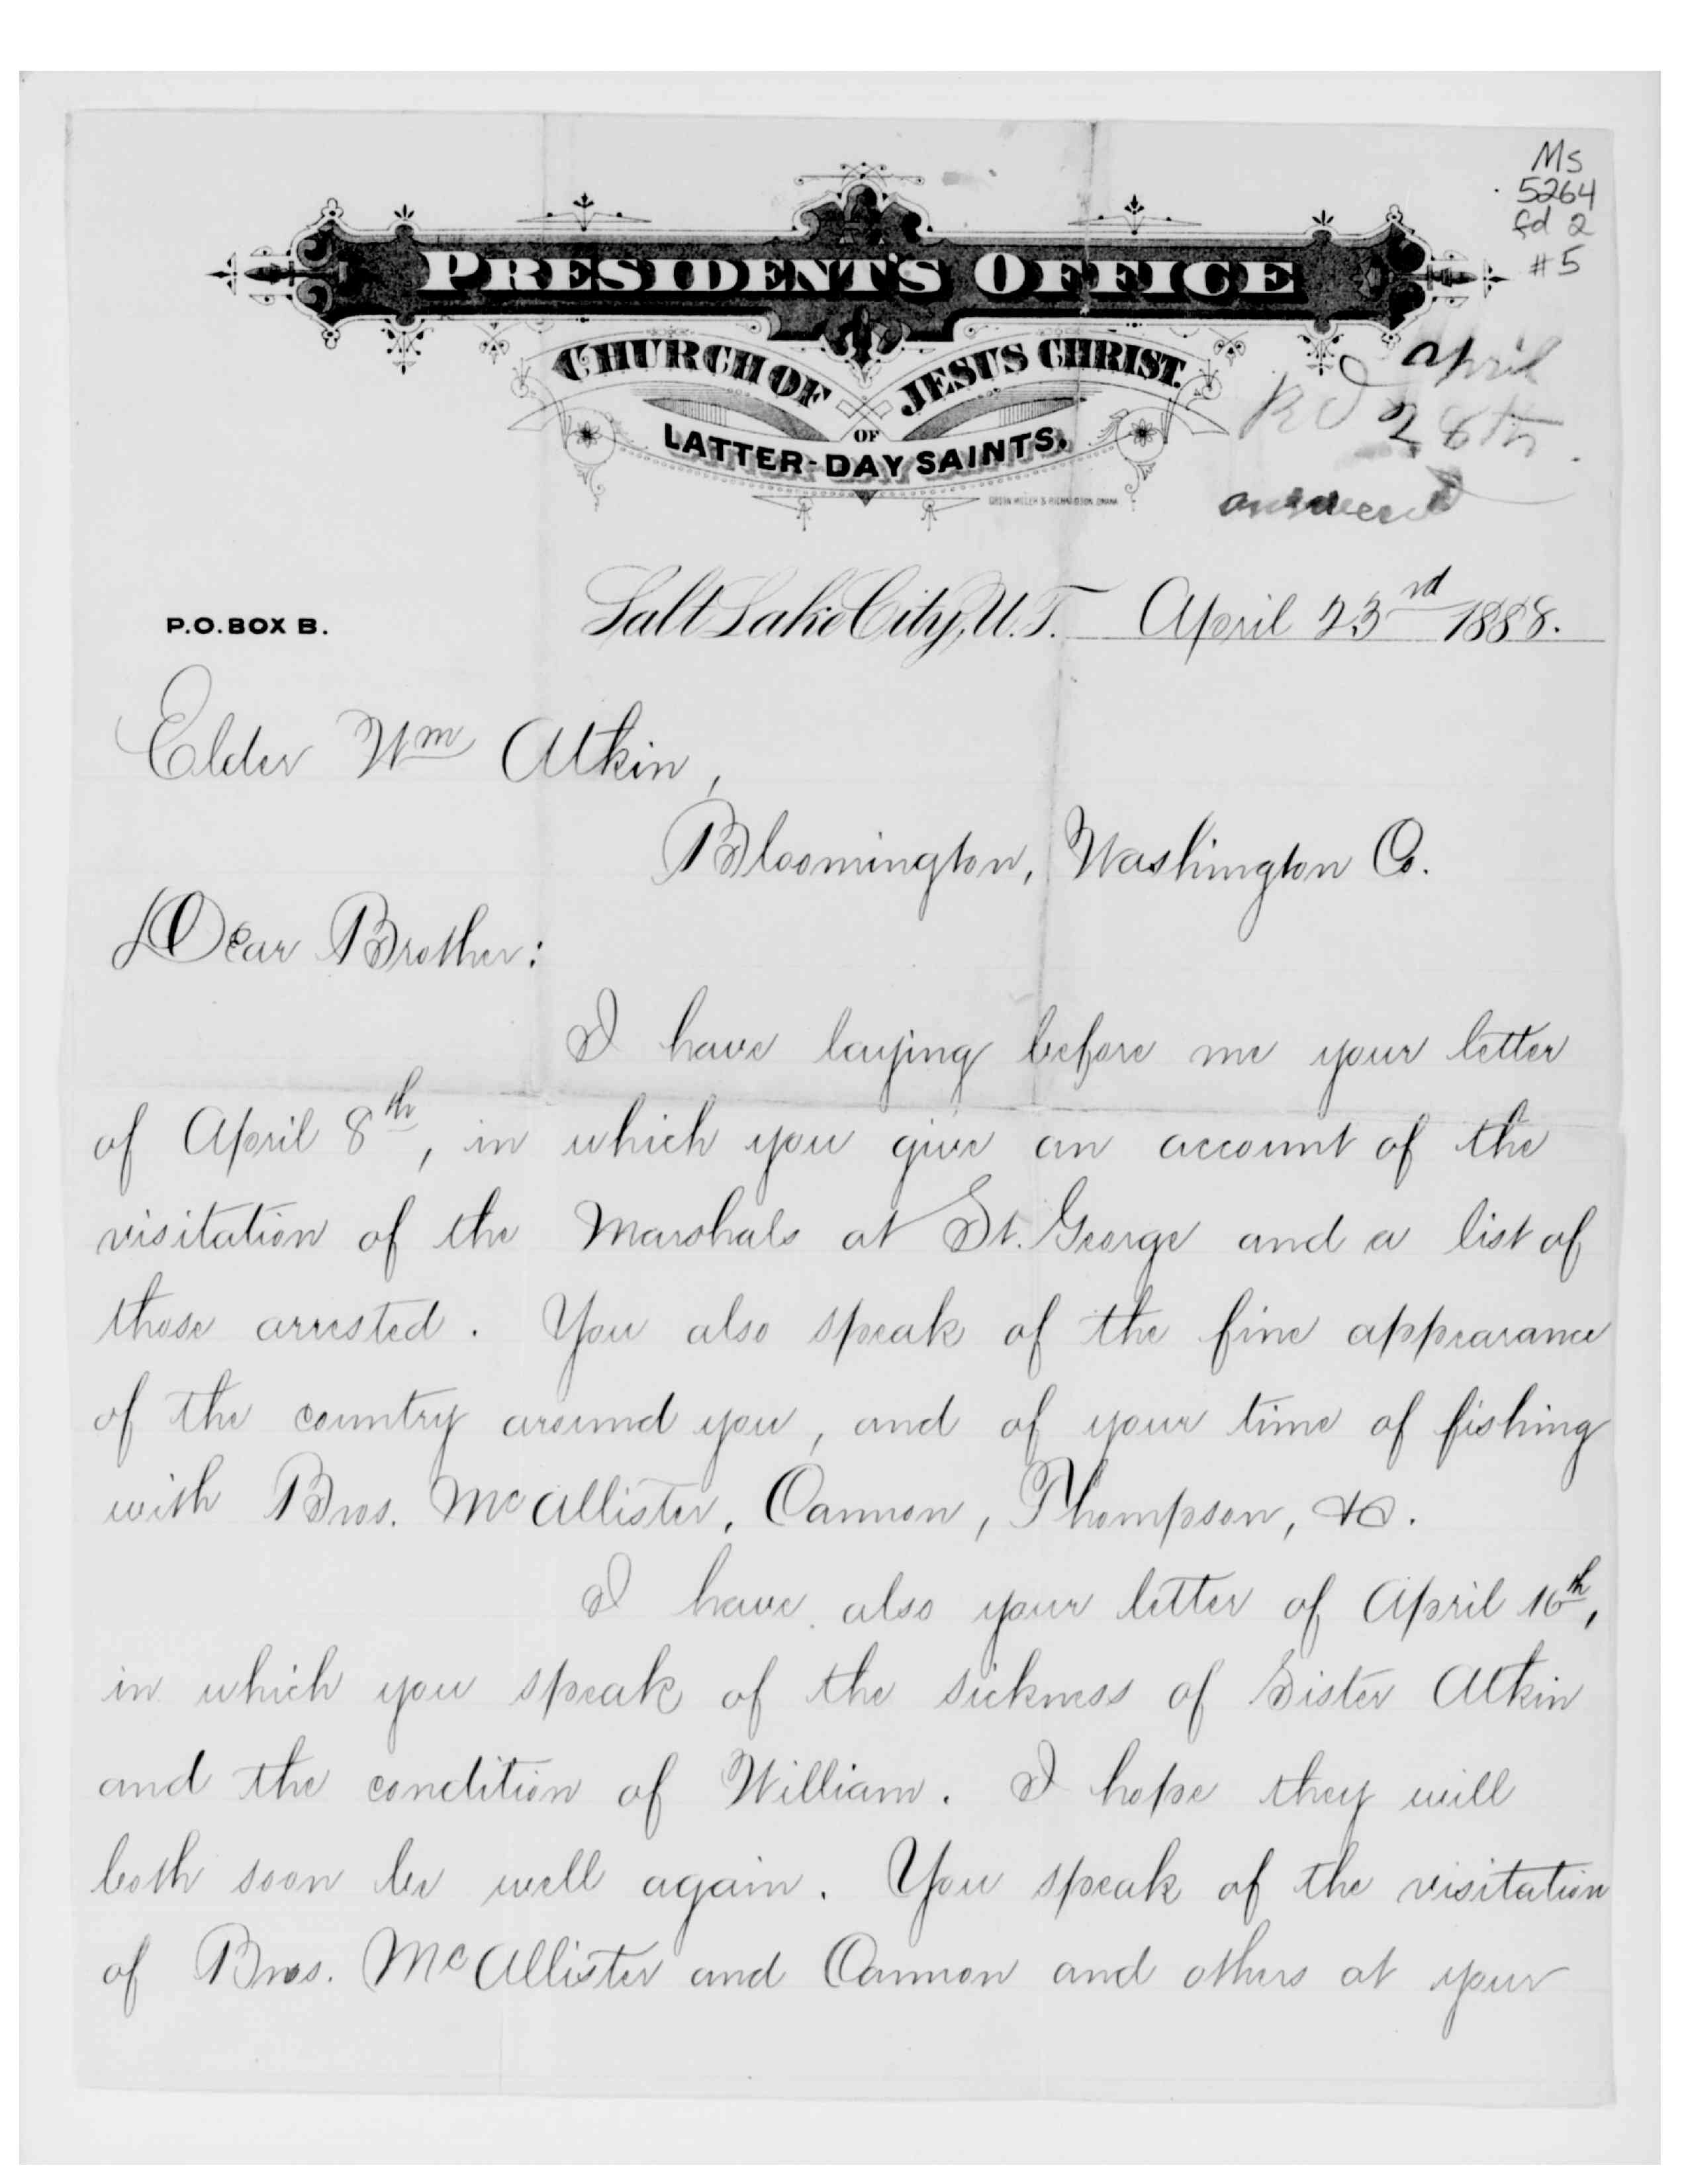 Ms
5264
fd 2
#5
PRESIDENT'S OFFICE
CHURCH OF JESUS CHRIST
OF
LATTER-DAY SAINTS.
april
Rd 28th
answered
P.O. BOX B.
Salt Lake City, U.T. April 23rd 1888.
Elder Wm Atkin,
Bloomington, Washington Co.
Dear Brother:
I have laying before me your letter
of April 8th, in which you give an account of the
visitation of the Marshals at St. George and a list of
those arrested. You also speak of the fine appearance
of the country around you, and of your time of fishing
with Bros. McAllister, Cannon, Thompson, &c.
I have also your letter of April 16th,
in which you speak of the sickness of Sister Atkin
and the condition of William. I hope they will
both soon be well again. You speak of the visitation
of Bros. McAllister and Cannon and others at your